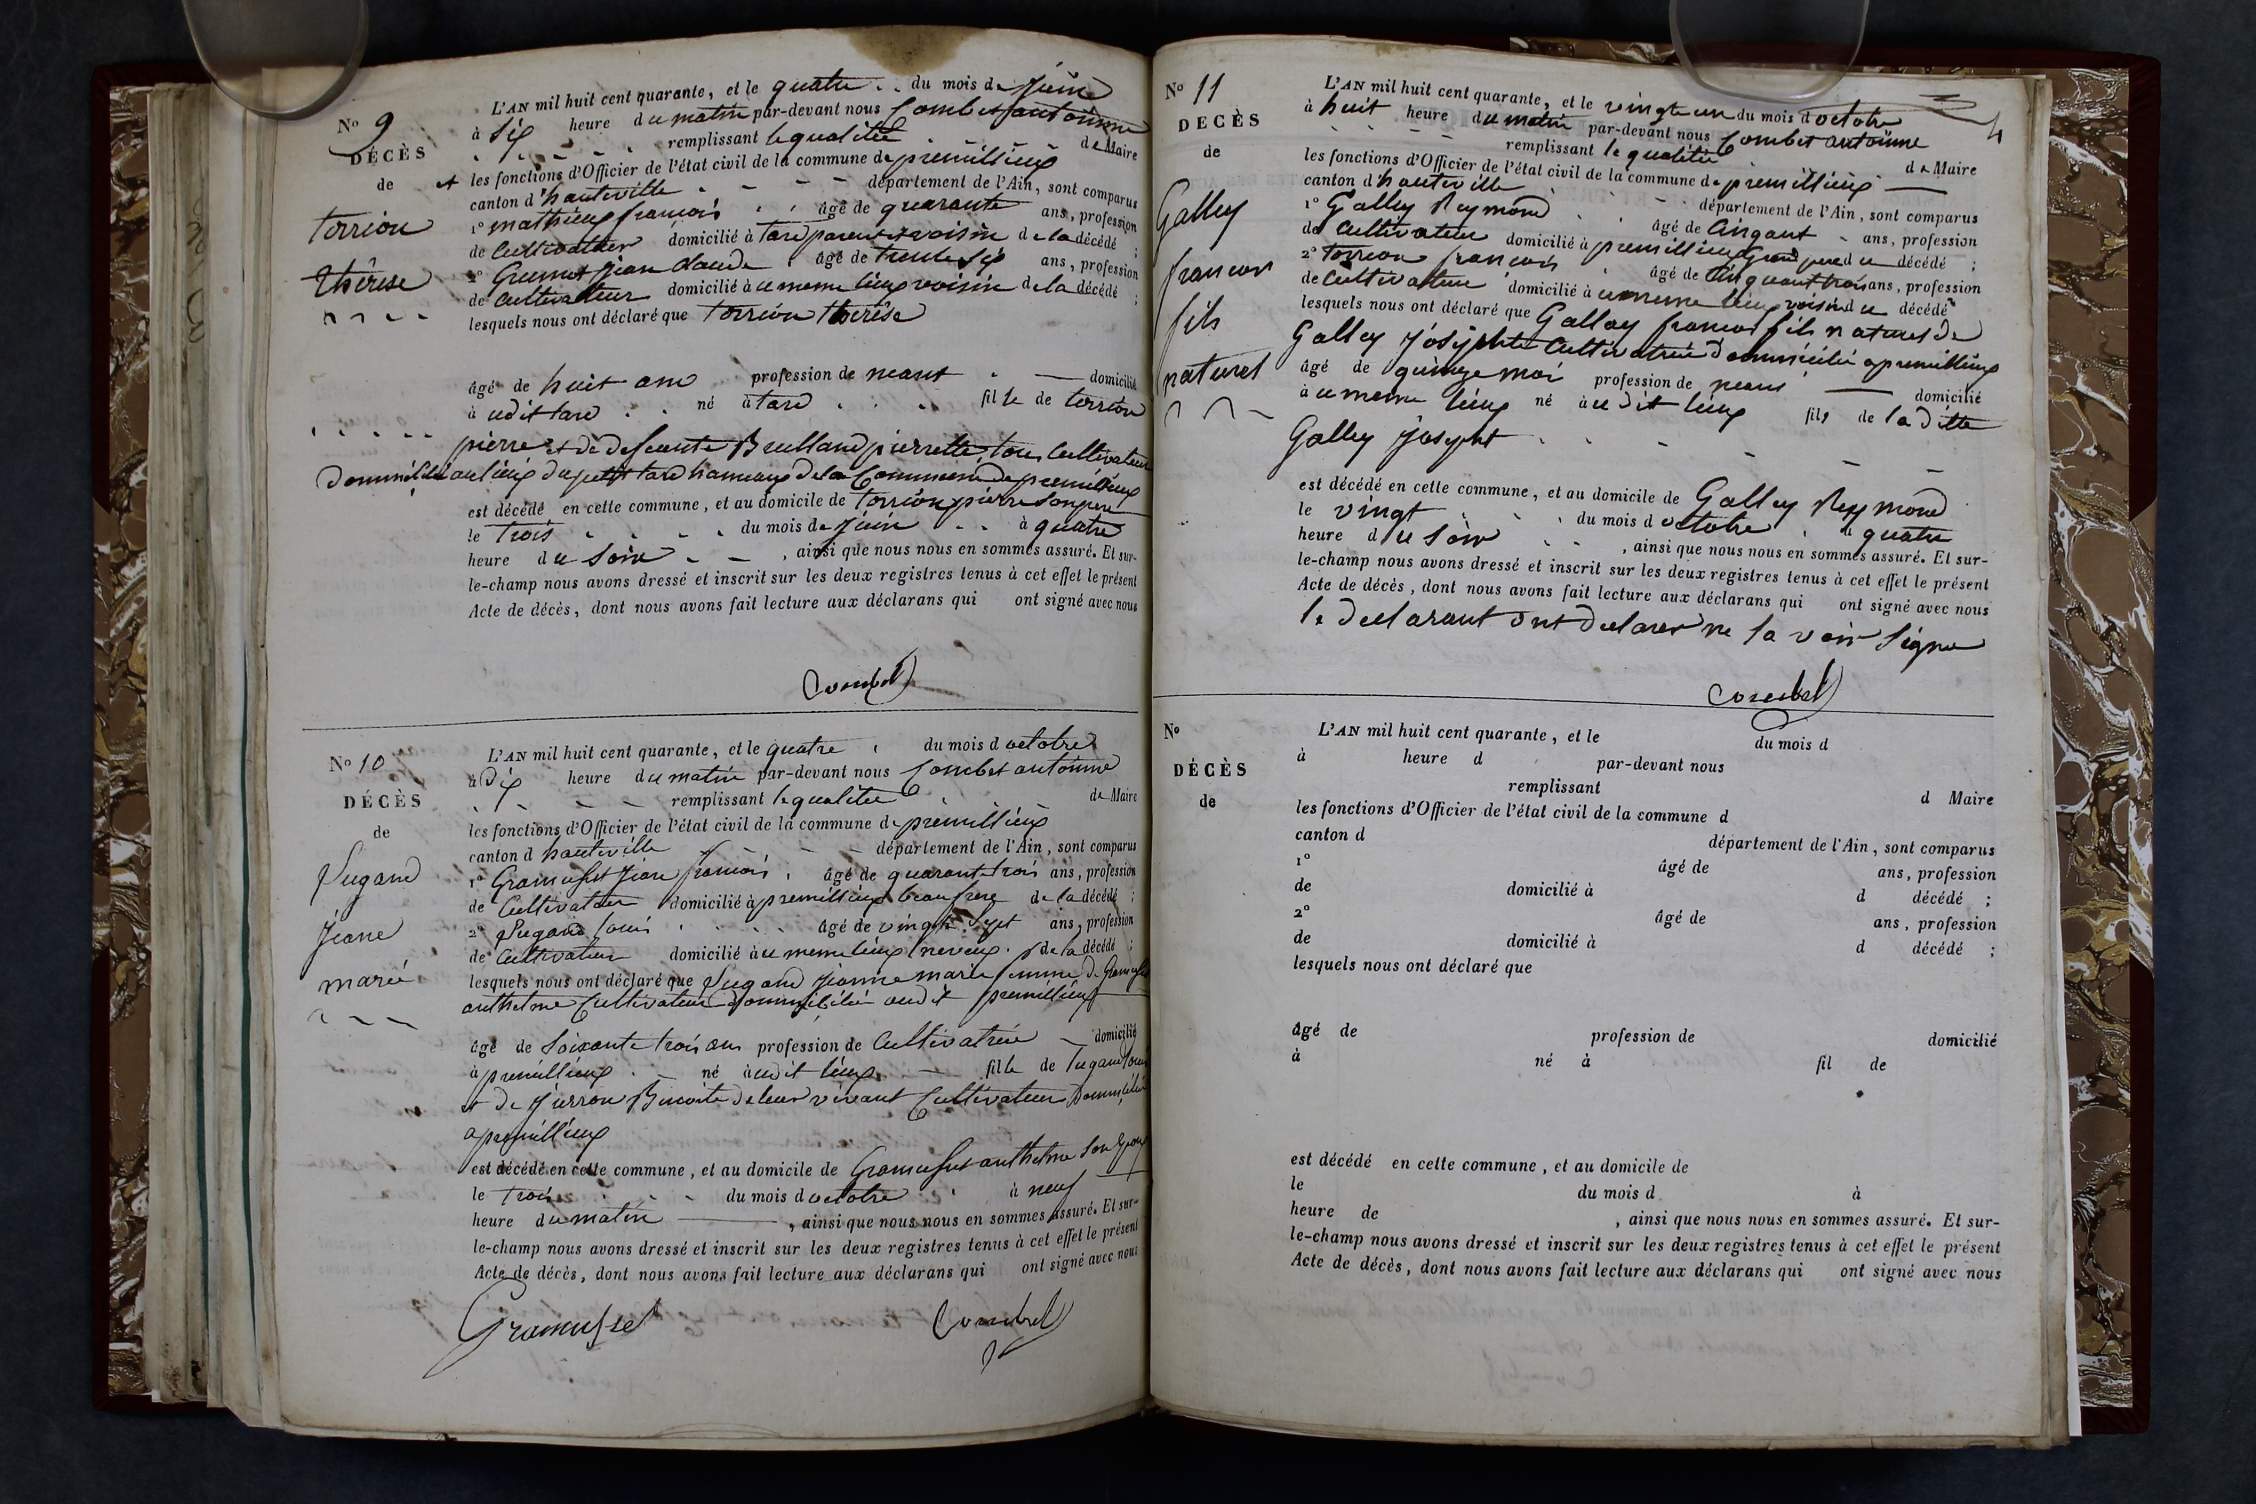 N° 9
DÉCÈS
de
torrion
thérèse
L'AN mil huit cent quarante, et le quatre du mois de juin
à six heure du matin par-devant nous Combet antoinne
remplissant le qualitée de Maire
et les fonctions d'Officier de l'état civil de la commune de premillieux
canton d'hauteville département de l'Ain, sont comparus
1° mathieux francois âgé de quarante ans, profession
de Cultivateur domicilié à tard parent et voisin de la décédé ;
2° Grumet jean claude âgé de trente six ans, profession
de Cultivateur domicilié à ce meme lieux voisin de la décédé ;
lesquels nous ont déclaré que torrion thérèse
âgé de huit ans profession de neant domicilié
à cedit tard né à tard fille de torrion
pierre et de defeunte Brulland pierrette, tous Cultivateur
Dommicilié au lieux du petit tard hameaux de la Commune de premillieux
est décédé en cette commune, et au domicile de torrion pierre son pere
le trois du mois de juin à quatre
heure du soir, ainsi que nous nous en sommes assuré. Et sur-
le-champ nous avons dressé et inscrit sur les deux registres tenus à cet effet le présent
Acte de décès, dont nous avons fait lecture aux déclarans qui ont signé avec nous
Combet
N° 10
DÉCÈS
de
Tugand
jeane
marie
L'AN mil huit cent quarante, et le quatre du mois d octobre
à dix heure du matin par-devant nous Combet antoinne
remplissant le qualitée de Maire
les fonctions d'Officier de l'état civil de la commune de premillieux
canton d hauteville département de l'Ain, sont comparus
1° Gramusset jean francois âgé de quarante trois ans, profession
de Cultivateur domicilié à premillieux beau frere de la décédé ;
2° Tugand louis âgé de vingt sept ans, profession
de Cultivateur domicilié à ce meme lieux neveux de la décédé ;
lesquels nous ont déclaré que Tugand jeanne marie femme de Gramusset
anthelme Cultivateur dommicilié audit premillieux
âgé de soixante trois ans profession de Cultivatrice domicilié
à premillieux né à cedit lieux fille de Tugand louis
et de jurron Benoite de leur vivant Cultivateur Dommicilié
a premillieux
est décédé en cette commune, et au domicile de Gramusset anthelme son epoux
le trois du mois d octobre à neuf
heure du matin, ainsi que nous nous en sommes assuré. Et sur-
le-champ nous avons dressé et inscrit sur les deux registres tenus à cet effet le présent
Acte de décès, dont nous avons fait lecture aux déclarans qui ont signé avec nous
Gramusset Combet
N° 11
DÉCÈS
de
Galley
francois
fils
naturel
4
L'AN mil huit cent quarante, et le vingt un du mois d octobre
à huit heure du matin par-devant nous Combet antoinne
remplissant le qualitée de Maire
les fonctions d'Officier de l'état civil de la commune de premillieux
canton d'hauteville département de l'Ain, sont comparus
1° Galley Reymond âgé de Cinqant ans, profession
de Cultivateur domicilié à premillieux Grand pere du décédé ;
2° torrion francois âgé de Cinquant trois ans, profession
de Cultivateur domicilié à ce meme lieux voisin du décédé
lesquels nous ont déclaré que Galley francois fils naturel de
Galley josephte Cultivatrice dommicilié a premillieux
âgé de quinze moi profession de neans domicilié
à ce meme lieux né à ce dit lieux fils de la ditte
Galley josepht
est décédé en cette commune, et au domicile de Galley Reymond
le vingt du mois d octobre à quatre
heure du soir, ainsi que nous nous en sommes assuré. Et sur-
le-champ nous avons dressé et inscrit sur les deux registres tenus à cet effet le présent
Acte de décès, dont nous avons fait lecture aux déclarans qui ont signé avec nous
le declarant ont declarer ne sa voir signe
Combet
N°
DÉCÈS
de
L'AN mil huit cent quarante, et le du mois d
à heure d par-devant nous
remplissant d Maire
les fonctions d'Officier de l'état civil de la commune d
canton d département de l'Ain, sont comparus
1° âgé de ans, profession
de domicilié à d décédé ;
2° âgé de ans, profession
de domicilié à d décédé ;
lesquels nous ont déclaré que
âgé de profession de domicilié
à né à fil de
est décédé en cette commune, et au domicile de
le du mois d à
heure de , ainsi que nous nous en sommes assuré. Et sur-
le-champ nous avons dressé et inscrit sur les deux registres tenus à cet effet le présent
Acte de décès, dont nous avons fait lecture aux déclarans qui ont signé avec nous